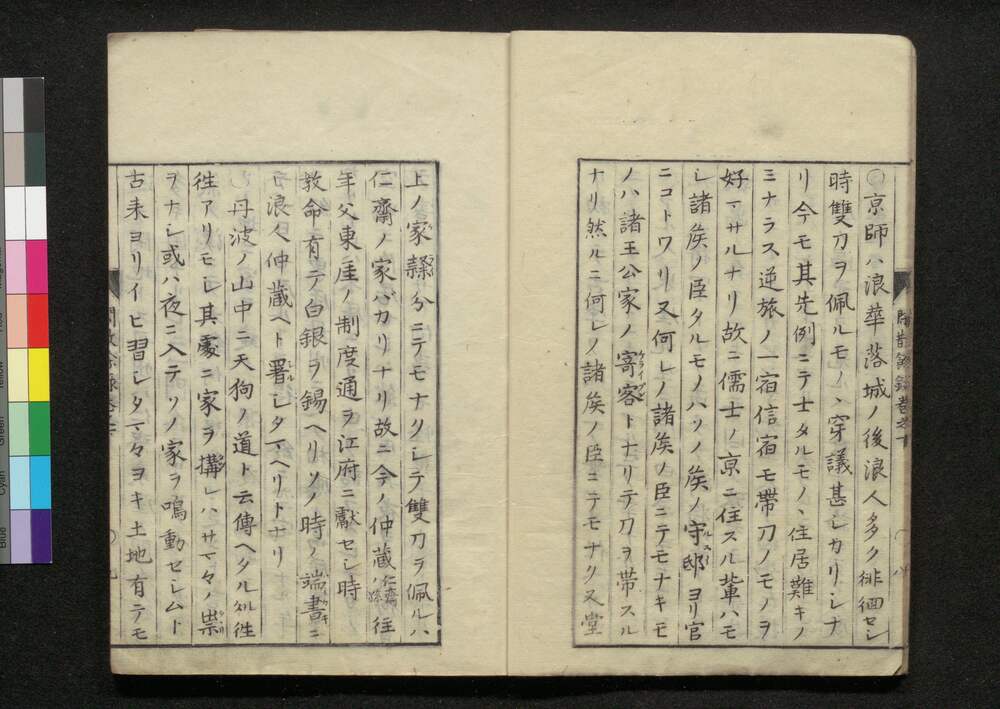 ○京師ハ浪華落城ノ後浪人多ク徘徊セシ
時雙刀ヲ佩ルモノヽ穿議甚シカリシナ
リ今モ其先例ニテ士タルモノヽ住居難キノ
ミナラス逆旅ノ一宿信宿モ帯刀ノモノヲ
好マサルナリ故ニ儒士ノ京ニ住スル輩ハモ
シ諸矦ノ臣タルモノハソノ矦ノ守邸ヨリ官
ニコトワリ又何レノ諸矦ノ臣ニテモナキモ
ノハ諸王公家ノ寄客トナリテ刀ヲ帯スル
ナリ然ルニ何レノ諸矦ノ臣ニテモナク又堂
上ノ家隷ノ分ニテモナクシテ雙刀ヲ佩ルハ
仁齋ノ家バカリナリ故ニ今ノ仲蔵往
年父東厓ノ制度通ヲ江府ニ獻セシ時
教命有テ白銀ヲ錫ヘリソノ時ノ端書ニ
浪人仲蔵ヘト署シタマヘリトナリ
○丹波ノ山中ニ天狗ノ道ト云傳ヘタル処徃
徃アリモシ其處ニ家ヲ搆レハサマ々ノ祟
ヲナシ或ハ夜ニ入テソノ家ヲ鳴動セシムト
古来ヨリイヒ習シタマ々ヨキ土地有テモ